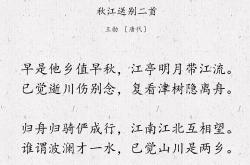 秋江送别二首
王勃 [唐代]
早是他乡值早秋，江亭明月带江流。
已觉逝川伤别念，复看津树隐离舟。
归舟归骑俨成行，江南江北互相望。
谁谓波澜才一水，已觉山川是两乡。